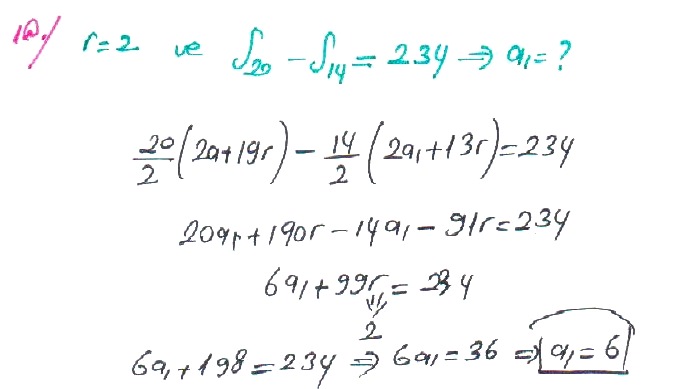 12./ r=2 ve S₂₀ - S₁₄ = 234 ⇒ a₁ = ?
20/2 (2a+19r) - 14/2 (2a₁+13r) = 234
20a₁+190r-14a₁-91r=234
6a₁+99r=234
2
6a₁+198=234 ⇒ 6a₁=36 ⇒ a₁=6